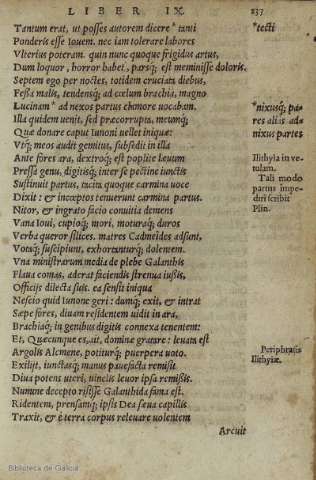 LIBER IX. 237
Tantum erat, ut posses autorem dicere * tanti
*tecti
Ponderis esse Iouem. nec iam tolerare labores
Vlterius poteram. quin nunc quoque frigidus artus,
Dum loquor, horror habet, parsq́; est meminisse doloris.
Septem ego per noctes, totidem cruciata diebus,
Fessa malis, tendensq́; ad cœlum brachia, magno
Lucinam * ad nexos partus clamore uocabam.
*nixusq́; pa
Illa quidem uenit, sed præcorrupta, meumq́;
res aliâs ad
Quæ donare caput Iunoni uellet iniquæ:
nixus partes
Vtq́; meos audit gemitus, subsedit in illa
Ante fores ara, dextroq́; est poplite læuum
Ilithyia in ve
Pressa genu, digitisq́; inter se pectine iunctis
tulam.
Sustinuit partus, tacita quoque carmina uoce
Tali modo
Dixit: & incœptos tenuerunt carmina partus.
partus impe
Nitor, & ingrato facio conuitia demens
diri scribit
Vana Ioui, cupioq́; mori, moturaq́; duros
Plin.
Verba queror silices. matres Cadmeides adsunt,
Votaq́; suscipiunt, exhortanturq́; dolentem.
Vna ministrarum media de plebe Galanthis
Flaua comas, aderat faciendis strenua iussis,
Officijs dilecta suis. ea sensit iniqua
Nescio quid Iunone geri: dumq́; exit, & intrat
Sæpe fores, diuam residentem uidit in ara,
Brachiaq́; in genibus digitis connexa tenentem:
Et, Quæcunque es, ait, dominæ gratare: leuata est
Argolis Alcmene, potiturq́; puerpera uoto.
Periphrasis
Exilijt, iunctasq́; manus pauefacta remisit
Ilithyiæ.
Diua potens uteri, uinclis leuor ipsa remissis.
Numine decepto risisse Galanthida fama est.
Ridentem, prensamq́; ipsis Dea sæua capillis
Traxit, & è terra corpus releuare uolentem
Arcuit
Biblioteca de Galicia